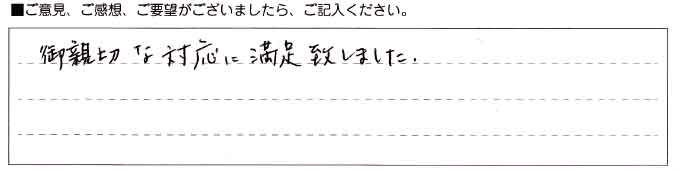 ■ご意見、ご感想、ご要望がございましたら、ご記入ください。
御親切な対応に満足致しました.